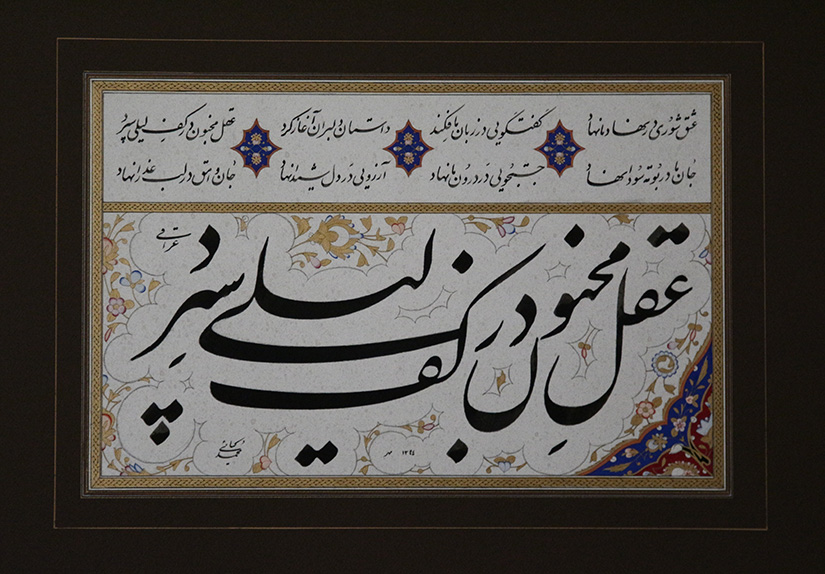 عشق شوری در نهاد ما نهاد گفتگویی در زبان ما فکند داستان دلبران آغاز کرد عقل مجنون در کف لیلی سپرد
جان ما در بوته سودا نهاد جستجویی در درون ما نهاد آرزویی در دل شیدا نهاد جان وامق در لب عذرا نهاد
عقل مجنون در کف لیلی سپرد
عراقی